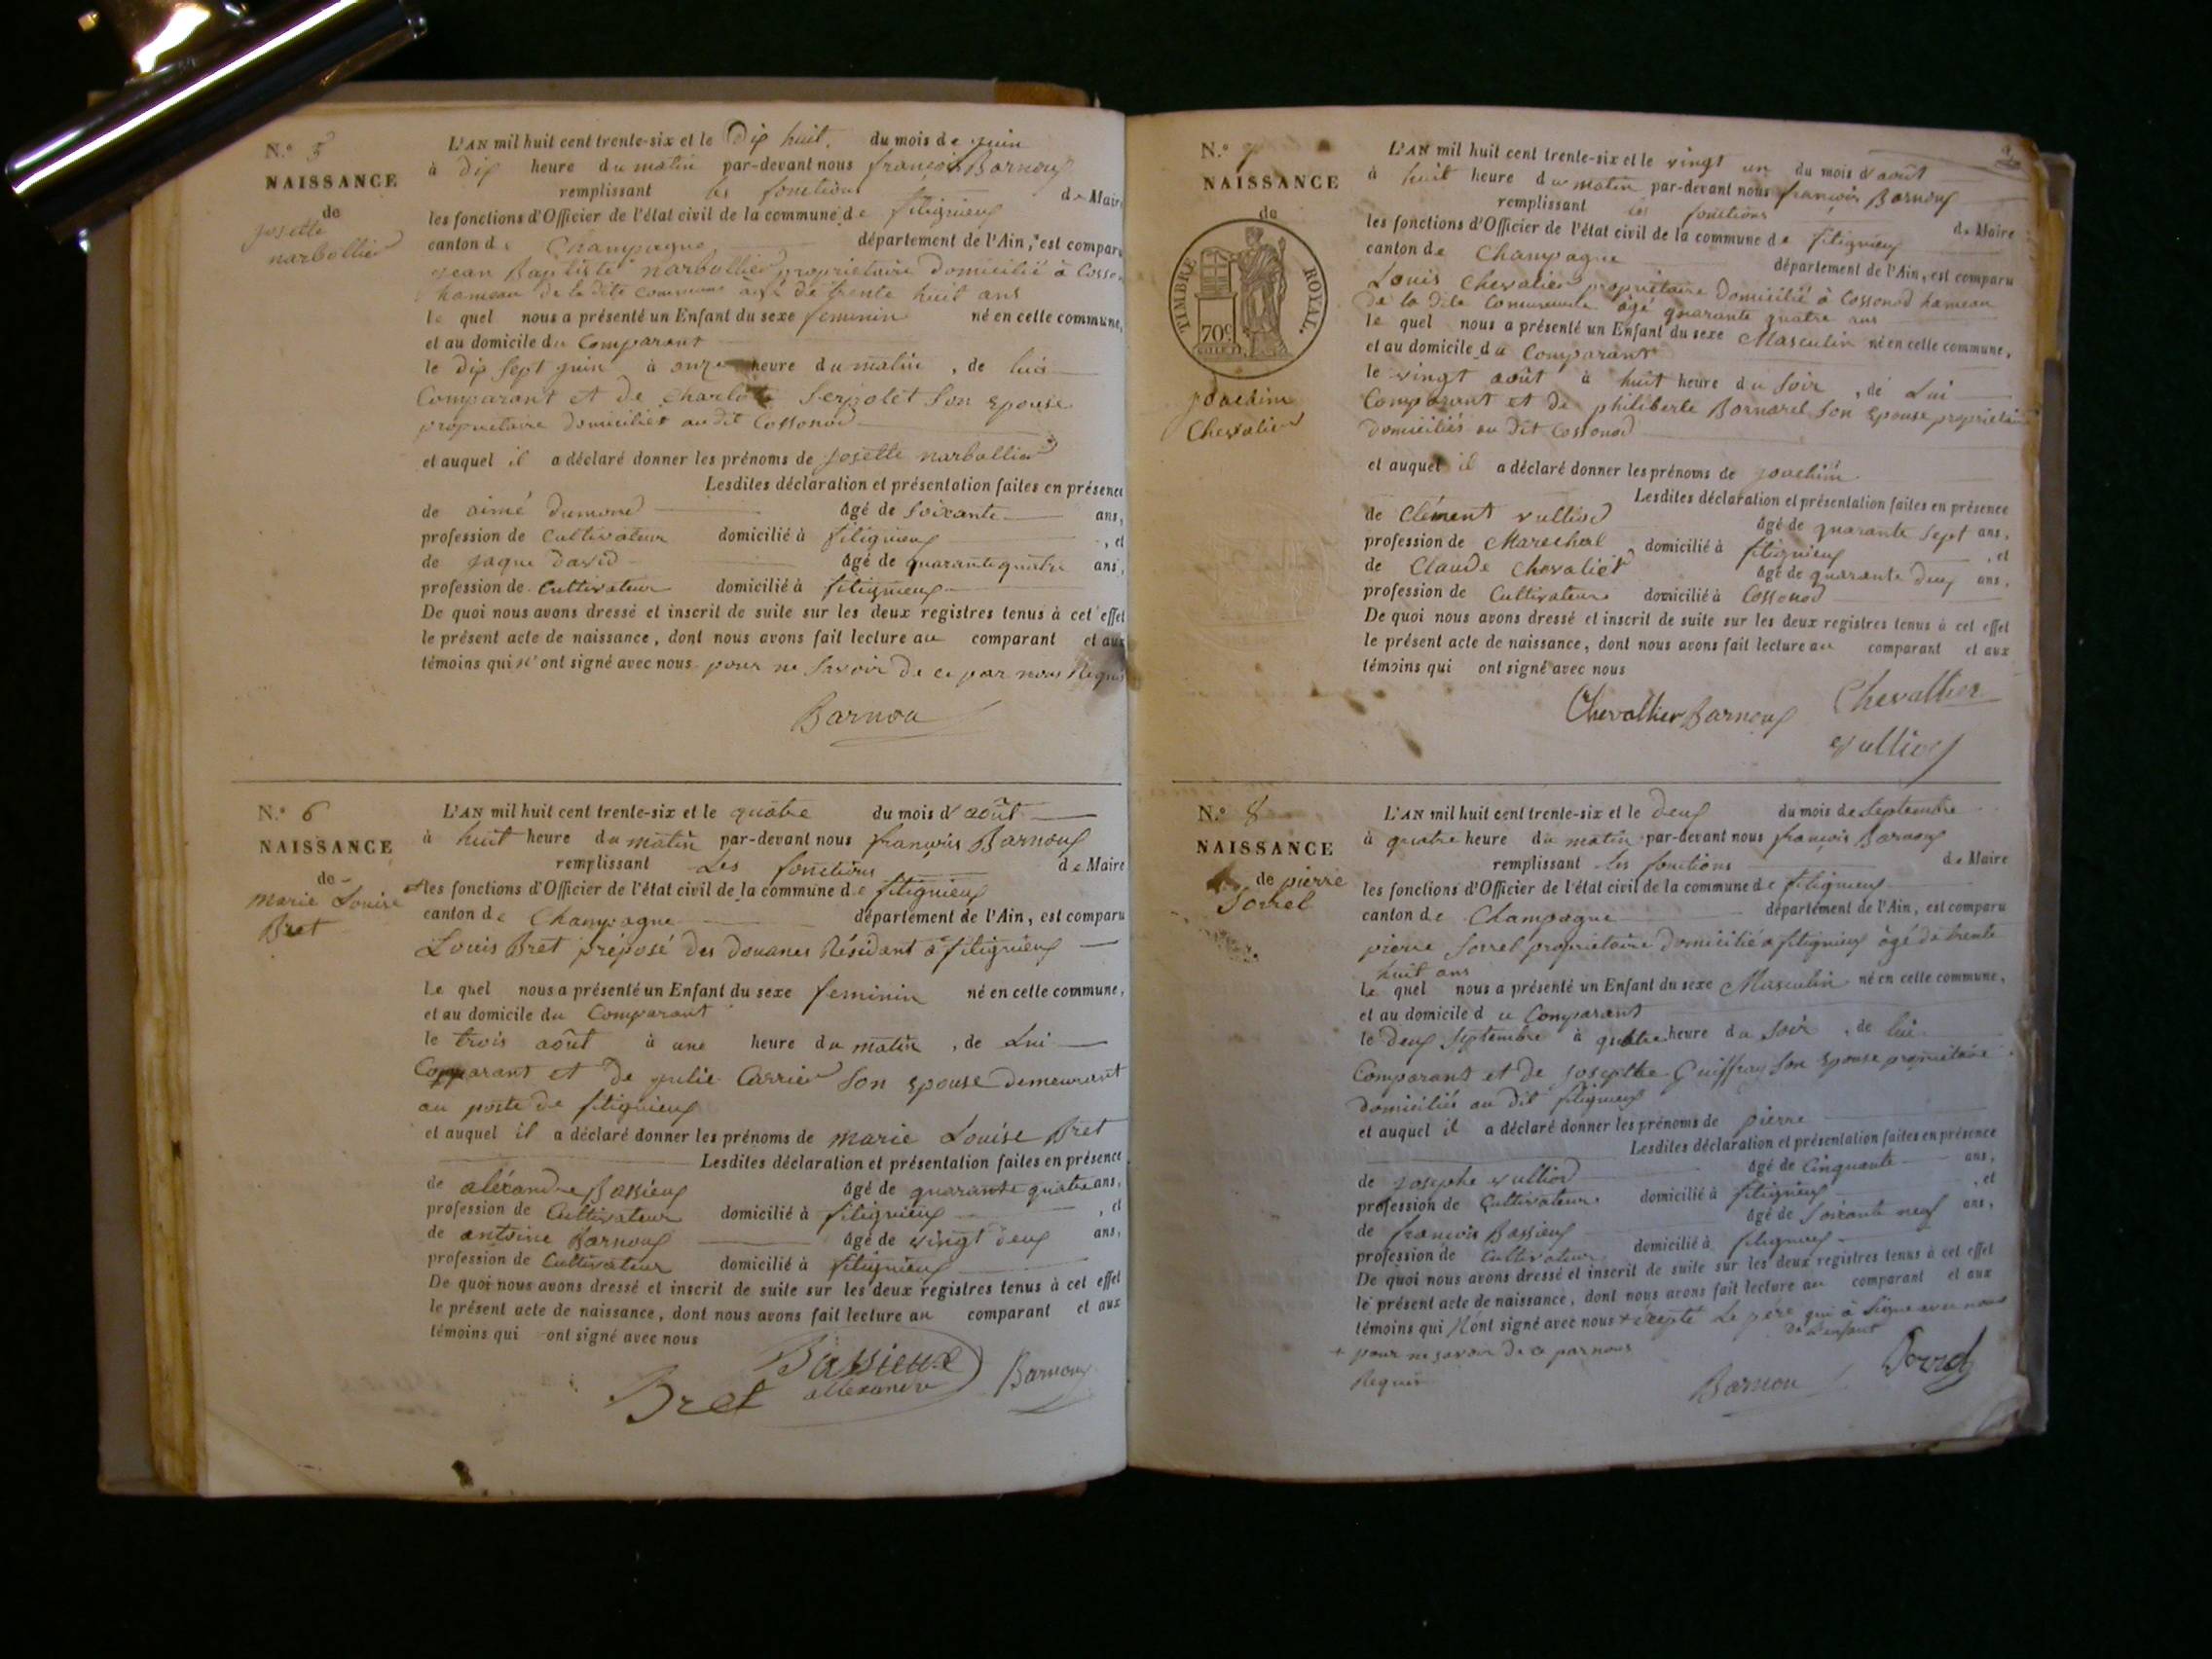 N.° 5
NAISSANCE
de
josette
narbollier
L'AN mil huit cent trente-six et le Dix huit. du mois de juin
à dix heure du matin par-devant nous françois Barnoux
remplissant les fonctions de Maire
les fonctions d'Officier de l'état civil de la commune de fitignieux
canton de Champagne département de l'Ain, est comparu
jean Baptiste narbollier propriétaire Domicilié à Cosso
hameau de la dite commune âgé de trente huit ans
le quel nous a présenté un Enfant du sexe feminin né en cette commune,
et au domicile du Comparant
le dix sept juin à onze heure du matin , de lui
Comparant et de Charlote Serpolet Son epouse
propriétaire domiciliés au dit Cossonod
et auquel il a déclaré donner les prénoms de josette narbollier
Lesdites déclaration et présentation faites en présence
de aimé dumond âgé de Soixante ans,
profession de Cultivateur domicilié à fitignieux , et
de jaque david âgé de quarante quatre ans,
profession de Cultivateur domicilié à fitignieux
De quoi nous avons dressé et inscrit de suite sur les deux registres tenus à cet effet
le présent acte de naissance, dont nous avons fait lecture au comparant et aux
témoins qui n'ont signé avec nous pour ne Savoir de ce par nous Requis
Barnou
N.° 6
NAISSANCE
de
marie Louise
Bret
L'AN mil huit cent trente-six et le quatre du mois d'août
à huit heure du matin par-devant nous françois Barnoux
remplissant Les fonctions de Maire
les fonctions d'Officier de l'état civil de la commune de fitignieux
canton de Champagne département de l'Ain, est comparu
Louis Bret préposé des douanes Résidant à fitignieux
Le quel nous a présenté un Enfant du sexe feminin né en cette commune,
et au domicile du Comparant
le trois août à une heure du matin , de Lui
Comparant et De julie Carrier Son epouse demeurant
au poste de fitignieux
et auquel il a déclaré donner les prénoms de marie Louise Bret
Lesdites déclaration et présentation faites en présence
de aléxandre Bassieux âgé de quarante quatre ans,
profession de Cultivateur domicilié à fitignieux , et
de antoine Barnoux âgé de vingt deux ans,
profession de Cultivateur domicilié à fitignieux
De quoi nous avons dressé et inscrit de suite sur les deux registres tenus à cet effet
le présent acte de naissance, dont nous avons fait lecture au comparant et aux
témoins qui ont signé avec nous
Bassieux
Bret allexandre Barnoux
N.° 7
NAISSANCE
de
TIMBRE ROYAL.
70c
joachim
Chevalier
L'AN mil huit cent trente-six et le vingt un du mois d'août
à huit heure du matin par-devant nous françois Barnoux
remplissant les fonctions de Maire
les fonctions d'Officier de l'état civil de la commune de fitignieux
canton de Champagne département de l'Ain, est comparu
Louis Chevalier propriétaire Domicilié à Cossonod hameau
de la dite Commune âgé quarante quatre ans
le quel nous a présenté un Enfant du sexe Masculin né en cette commune,
et au domicile du Comparant
le vingt août à huit heure du Soir , de Lui
Comparant et de philiberte Bornarel Son Epouse propriétaire
domiciliés au dit Cossonod
et auquel il a déclaré donner les prénoms de joachim
Lesdites déclaration et présentation faites en présence
de Clément vulliod âgé de quarante Sept ans,
profession de Marechal domicilié à fitignieux , et
de Claude Chevalier âgé de quarante deux ans,
profession de Cultivateur domicilié à Cossonod
De quoi nous avons dressé et inscrit de suite sur les deux registres tenus à cet effet
le présent acte de naissance, dont nous avons fait lecture au comparant et aux
témoins qui ont signé avec nous
Chevallier Barnoux Chevallier
vulliod
N.° 8
NAISSANCE
de pierre
Sorrel
L'AN mil huit cent trente-six et le deux du mois de Septembre
à quatre heure du matin par-devant nous françois Barnoux
remplissant les fonctions de Maire
les fonctions d'Officier de l'état civil de la commune de fitignieux
canton de Champagne département de l'Ain, est comparu
pierre Sorrel propriétaire Domicilié a fitignieux âgé de trente
huit ans
Le quel nous a présenté un Enfant du sexe Masculin né en cette commune,
et au domicile du Comparant
le deux Septembre à quatre heure du Soir , de lui
Comparant et de josepthe Guiffray Son Epouse propriétaire
domiciliés au dit fitignieux
et auquel il a déclaré donner les prénoms de pierre
Lesdites déclaration et présentation faites en présence
de josephe vulliod âgé de Cinquante ans,
profession de Cultivateur domicilié à fitignieux , et
de françois Bassieux âgé de Soixante neuf ans,
profession de Cultivateur domicilié à fitignieux
De quoi nous avons dressé et inscrit de suite sur les deux registres tenus à cet effet
le présent acte de naissance, dont nous avons fait lecture au comparant et aux
témoins qui N'ont signé avec nous + éxepté Le père qui à Signé avec nous
de L'enfant
+ pour ne savoir de ce par nous
Requis
Barnou Sorrel